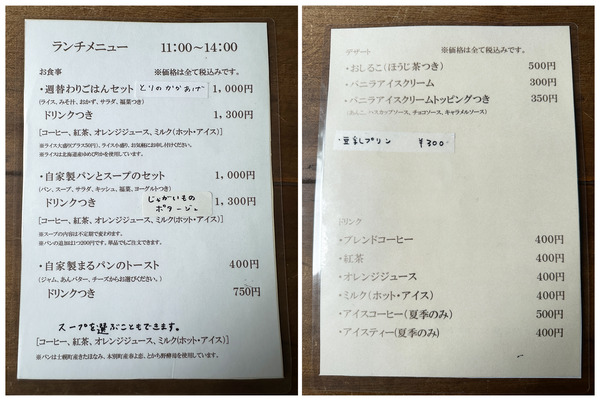 ランチメニュー　11:00~14:00
お食事　※価格は全て税込みです。
・週替わりごはんセット　とりのからあげ　1,000円
(ライス、みそ汁、おかず、サラダ、福菜つき)
ドリンクつき　1,300円
[コーヒー、紅茶、オレンジジュース、ミルク(ホット・アイス)]
※ライス大盛り(プラス50円)、ライス小盛り、お気軽にお申し付けください。
※ライスは北海道産ゆめぴりかを使用しています。
・自家製パンとスープのセット　1,000円
(パン、スープ、サラダ、キッシュ、福菜、ヨーグルトつき)
じゃがいものポタージュ
ドリンクつき　1,300円
[コーヒー、紅茶、オレンジジュース、ミルク(ホット・アイス)]
※スープの内容は不定期で変わります。
※パンの追加は1つ200円です。単品でもご注文できます。
・自家製まるパンのトースト　400円
(ジャム、あんバター、チーズからお選びください。)
ドリンクつき　750円
スープを選ぶこともできます。
[コーヒー、紅茶、オレンジジュース、ミルク(ホット・アイス)]
※パンは士幌町産きたほなみ、本別町産春よ恋、とかち野酵母を使用しています。
デザート　※価格は全て税込みです。
・おしるこ(ほうじ茶つき)　500円
・バニラアイスクリーム　300円
・バニラアイスクリームトッピングつき　350円
(あんこ、ハスカップソース、チョコソース、キャラメルソース)
・豆乳プリン　¥300
ドリンク
・ブレンドコーヒー　400円
・紅茶　400円
・オレンジジュース　400円
・ミルク(ホット・アイス)　400円
・アイスコーヒー(夏季のみ)　500円
・アイスティー(夏季のみ)　400円